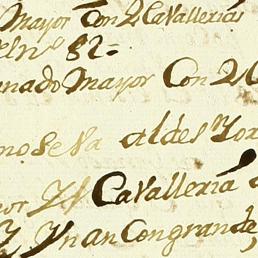 Mayor Con 2 Cavallerias
el nº 82=
nado Mayor Con 2
no se va aldes
or Cavalleria
Y Ynan Congrande,